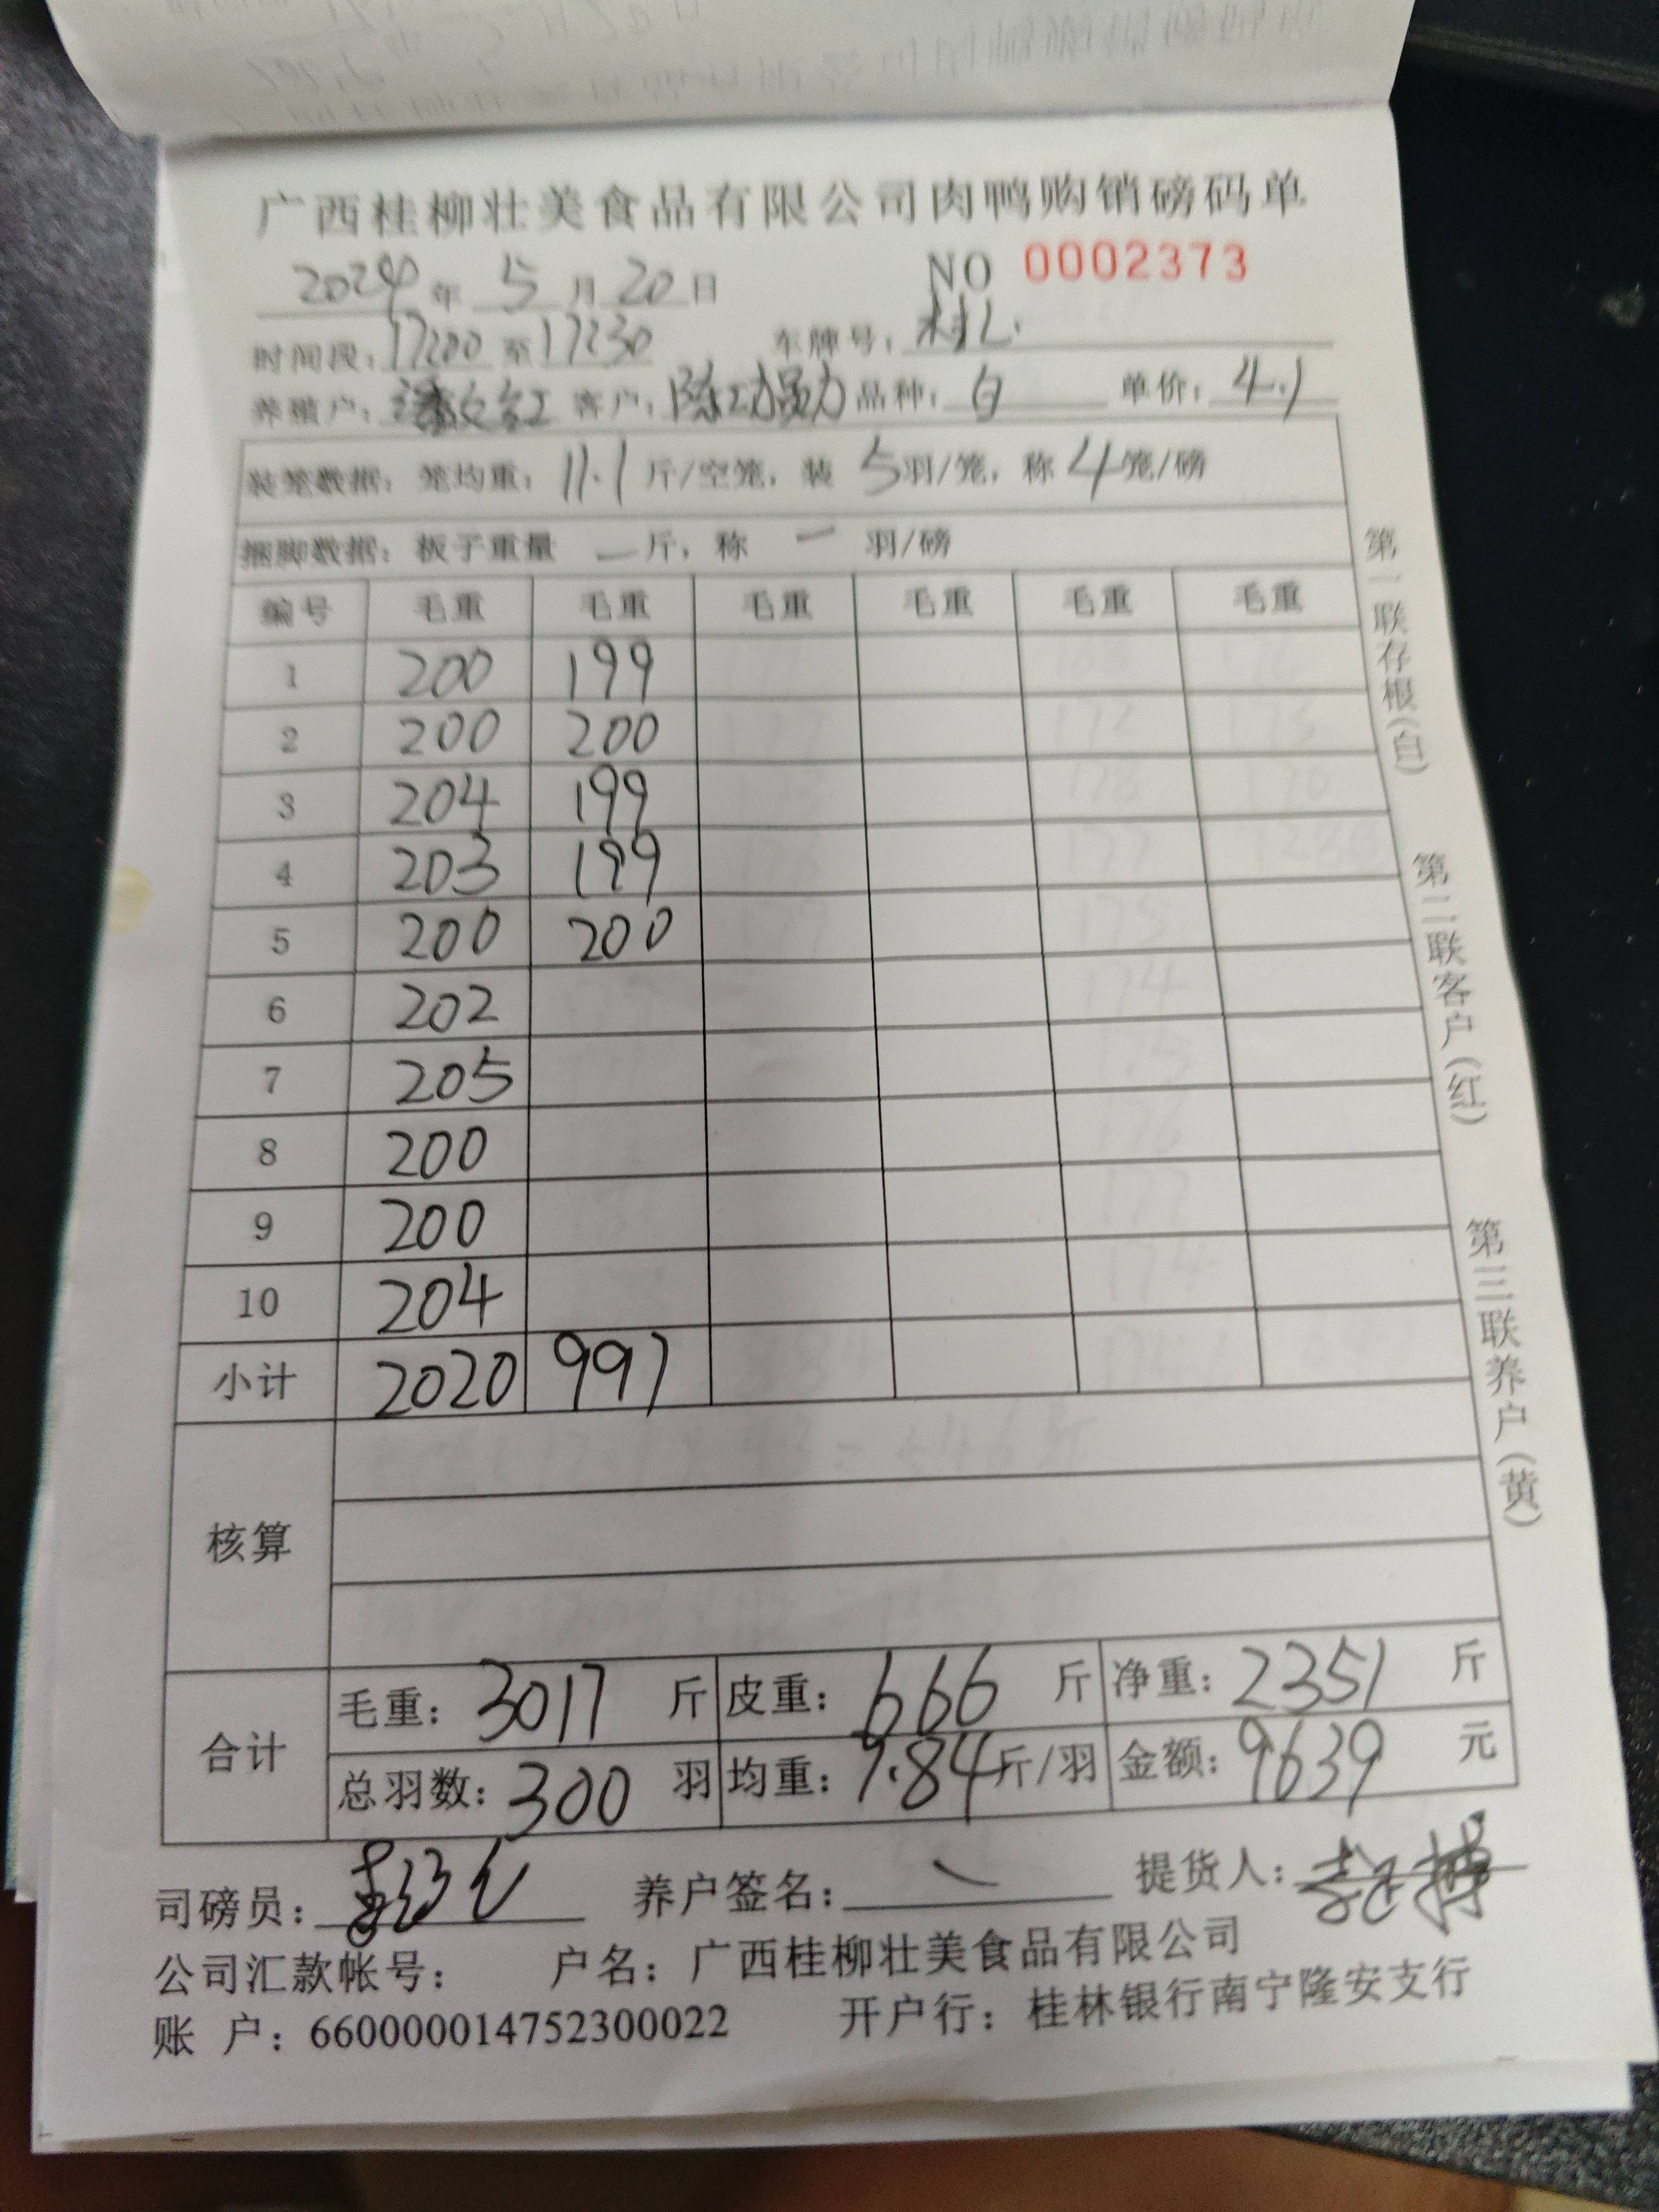 广西桂柳壮美食品有限公司肉鸭购销磅码单
2024年 5月20日 NO 0002373
时间段：17:00至17:30 车牌号：
养殖户： 客户：陈功强 品种：白 单价：4.1
装笼数据：笼均重：11.1斤/空笼，装 5羽/笼，称4笼/磅
捆脚数据：板子重量 — 斤，称 — 羽/磅
编号 毛重 毛重 毛重 毛重 毛重 毛重
1 200 199
2 200 200
3 204 199
4 203 199
5 200 200
6 202
7 205
8 200
9 200
10 204
小计 2020 997
核算
合计 毛重：3017 斤 皮重：666 斤 净重：2351 斤
总羽数：300 羽 均重：7.84斤/羽 金额：9639 元
司磅员： 养户签名： 提货人：
公司汇款帐号： 户名：广西桂柳壮美食品有限公司
账 户：660000014752300022 开户行：桂林银行南宁隆安支行
第一联存根（白） 第二联客户（红） 第三联养户（黄）